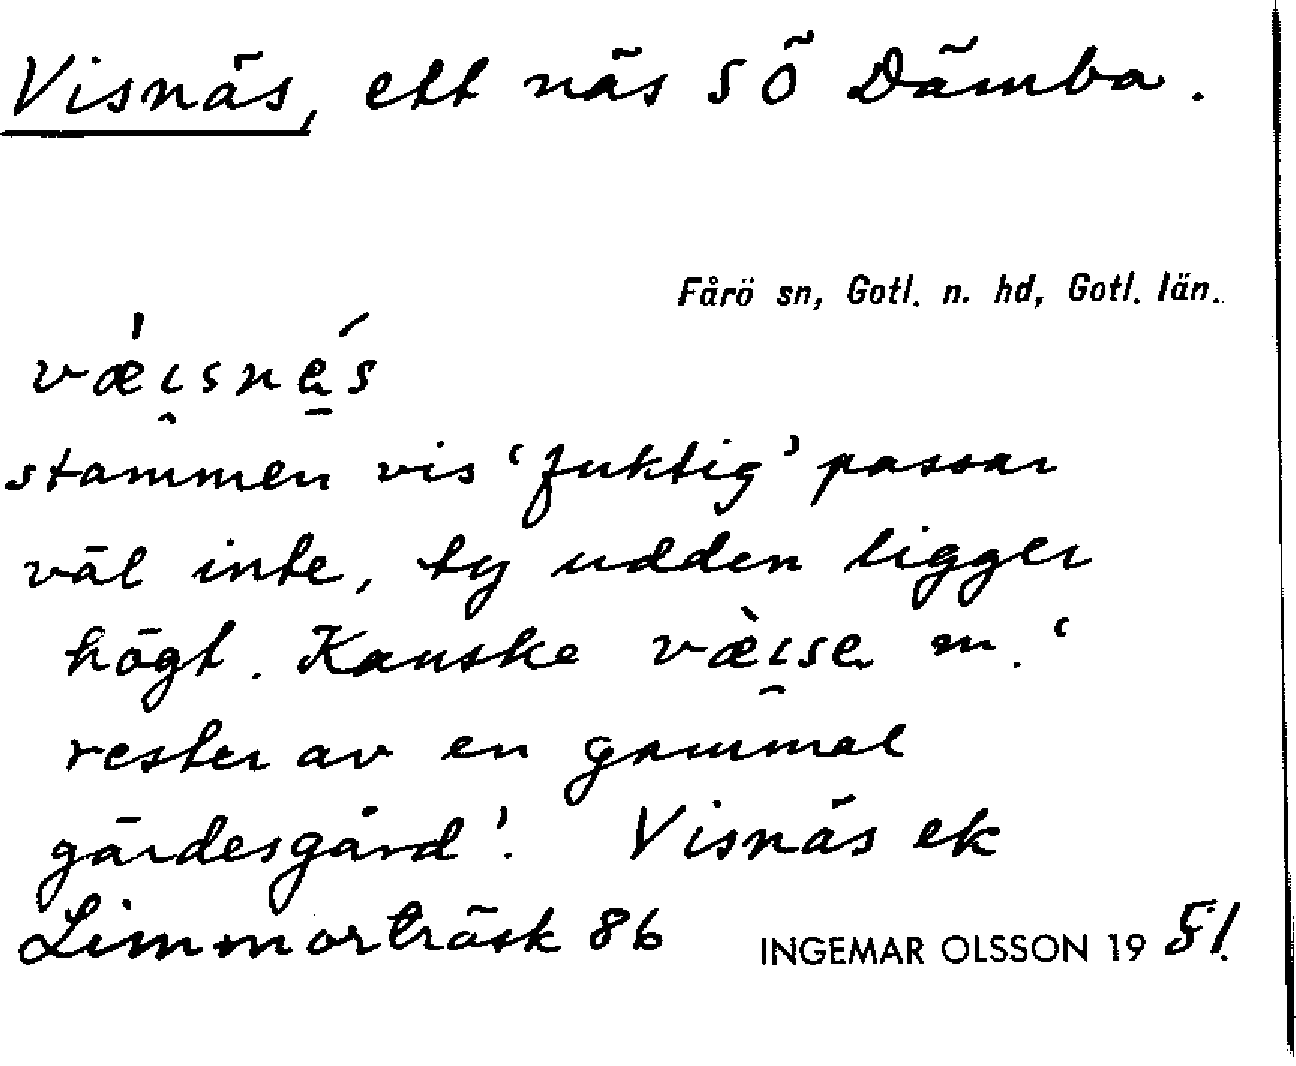 Visnäs, ett näs SÖ Dämba.
Fårö sn, Gotl. n. hd, Gotl. län.
væ̍ı̯sne̠s
stammen vis ‘fuktig’ passar
väl inte, ty udden ligger
högt. Kanske væ̀ı̯se m. ‘
rester av en gammal
gärdesgård’. Visnäs ek
Limmorträsk 86
INGEMAR OLSSON 1951.